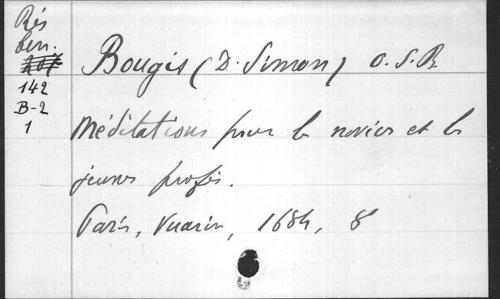 Rés
ben.
142
B-2
1
Bougis (D. Simon) O.S.B.
Méditations pour les novices et les
jeunes profès.
Paris, Vuarin, 1684, 8°